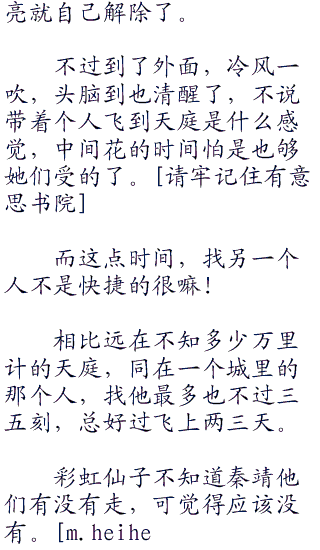 亮就自己解除了。
不过到了外面，冷风一
吹，头脑到也清醒了，不说
带着个人飞到天庭是什么感
觉，中间花的时间怕是也够
她们受的了。[请牢记住有意
思书院]
而这点时间，找另一个
人不是快捷的很嘛！
相比远在不知多少万里
计的天庭，同在一个城里的
那个人，找他最多也不过三
五刻，总好过飞上两三天。
彩虹仙子不知道秦靖他
们有没有走，可觉得应该没
有。[m.heihe